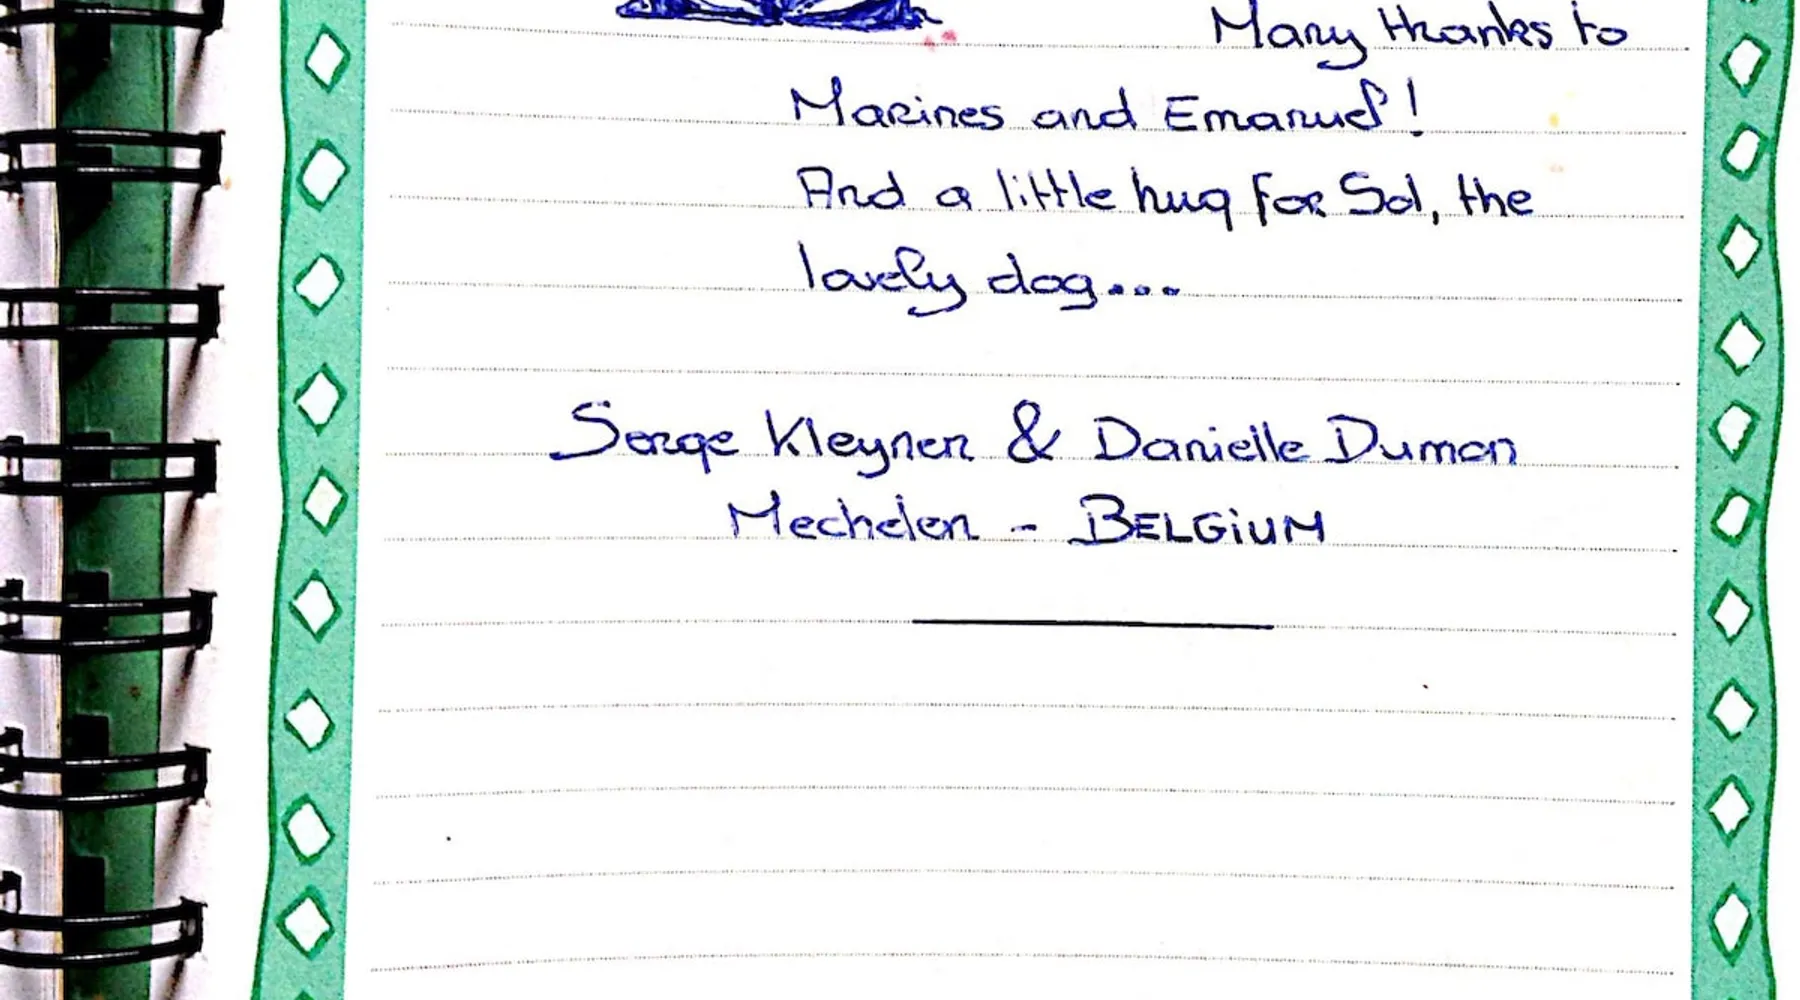 Many thanks to
Marines and Emanuel!
And a little hug for Sol, the
lovely dog...
Serge Kleynen & Danielle Dumon
Mechelen - BELGiUM